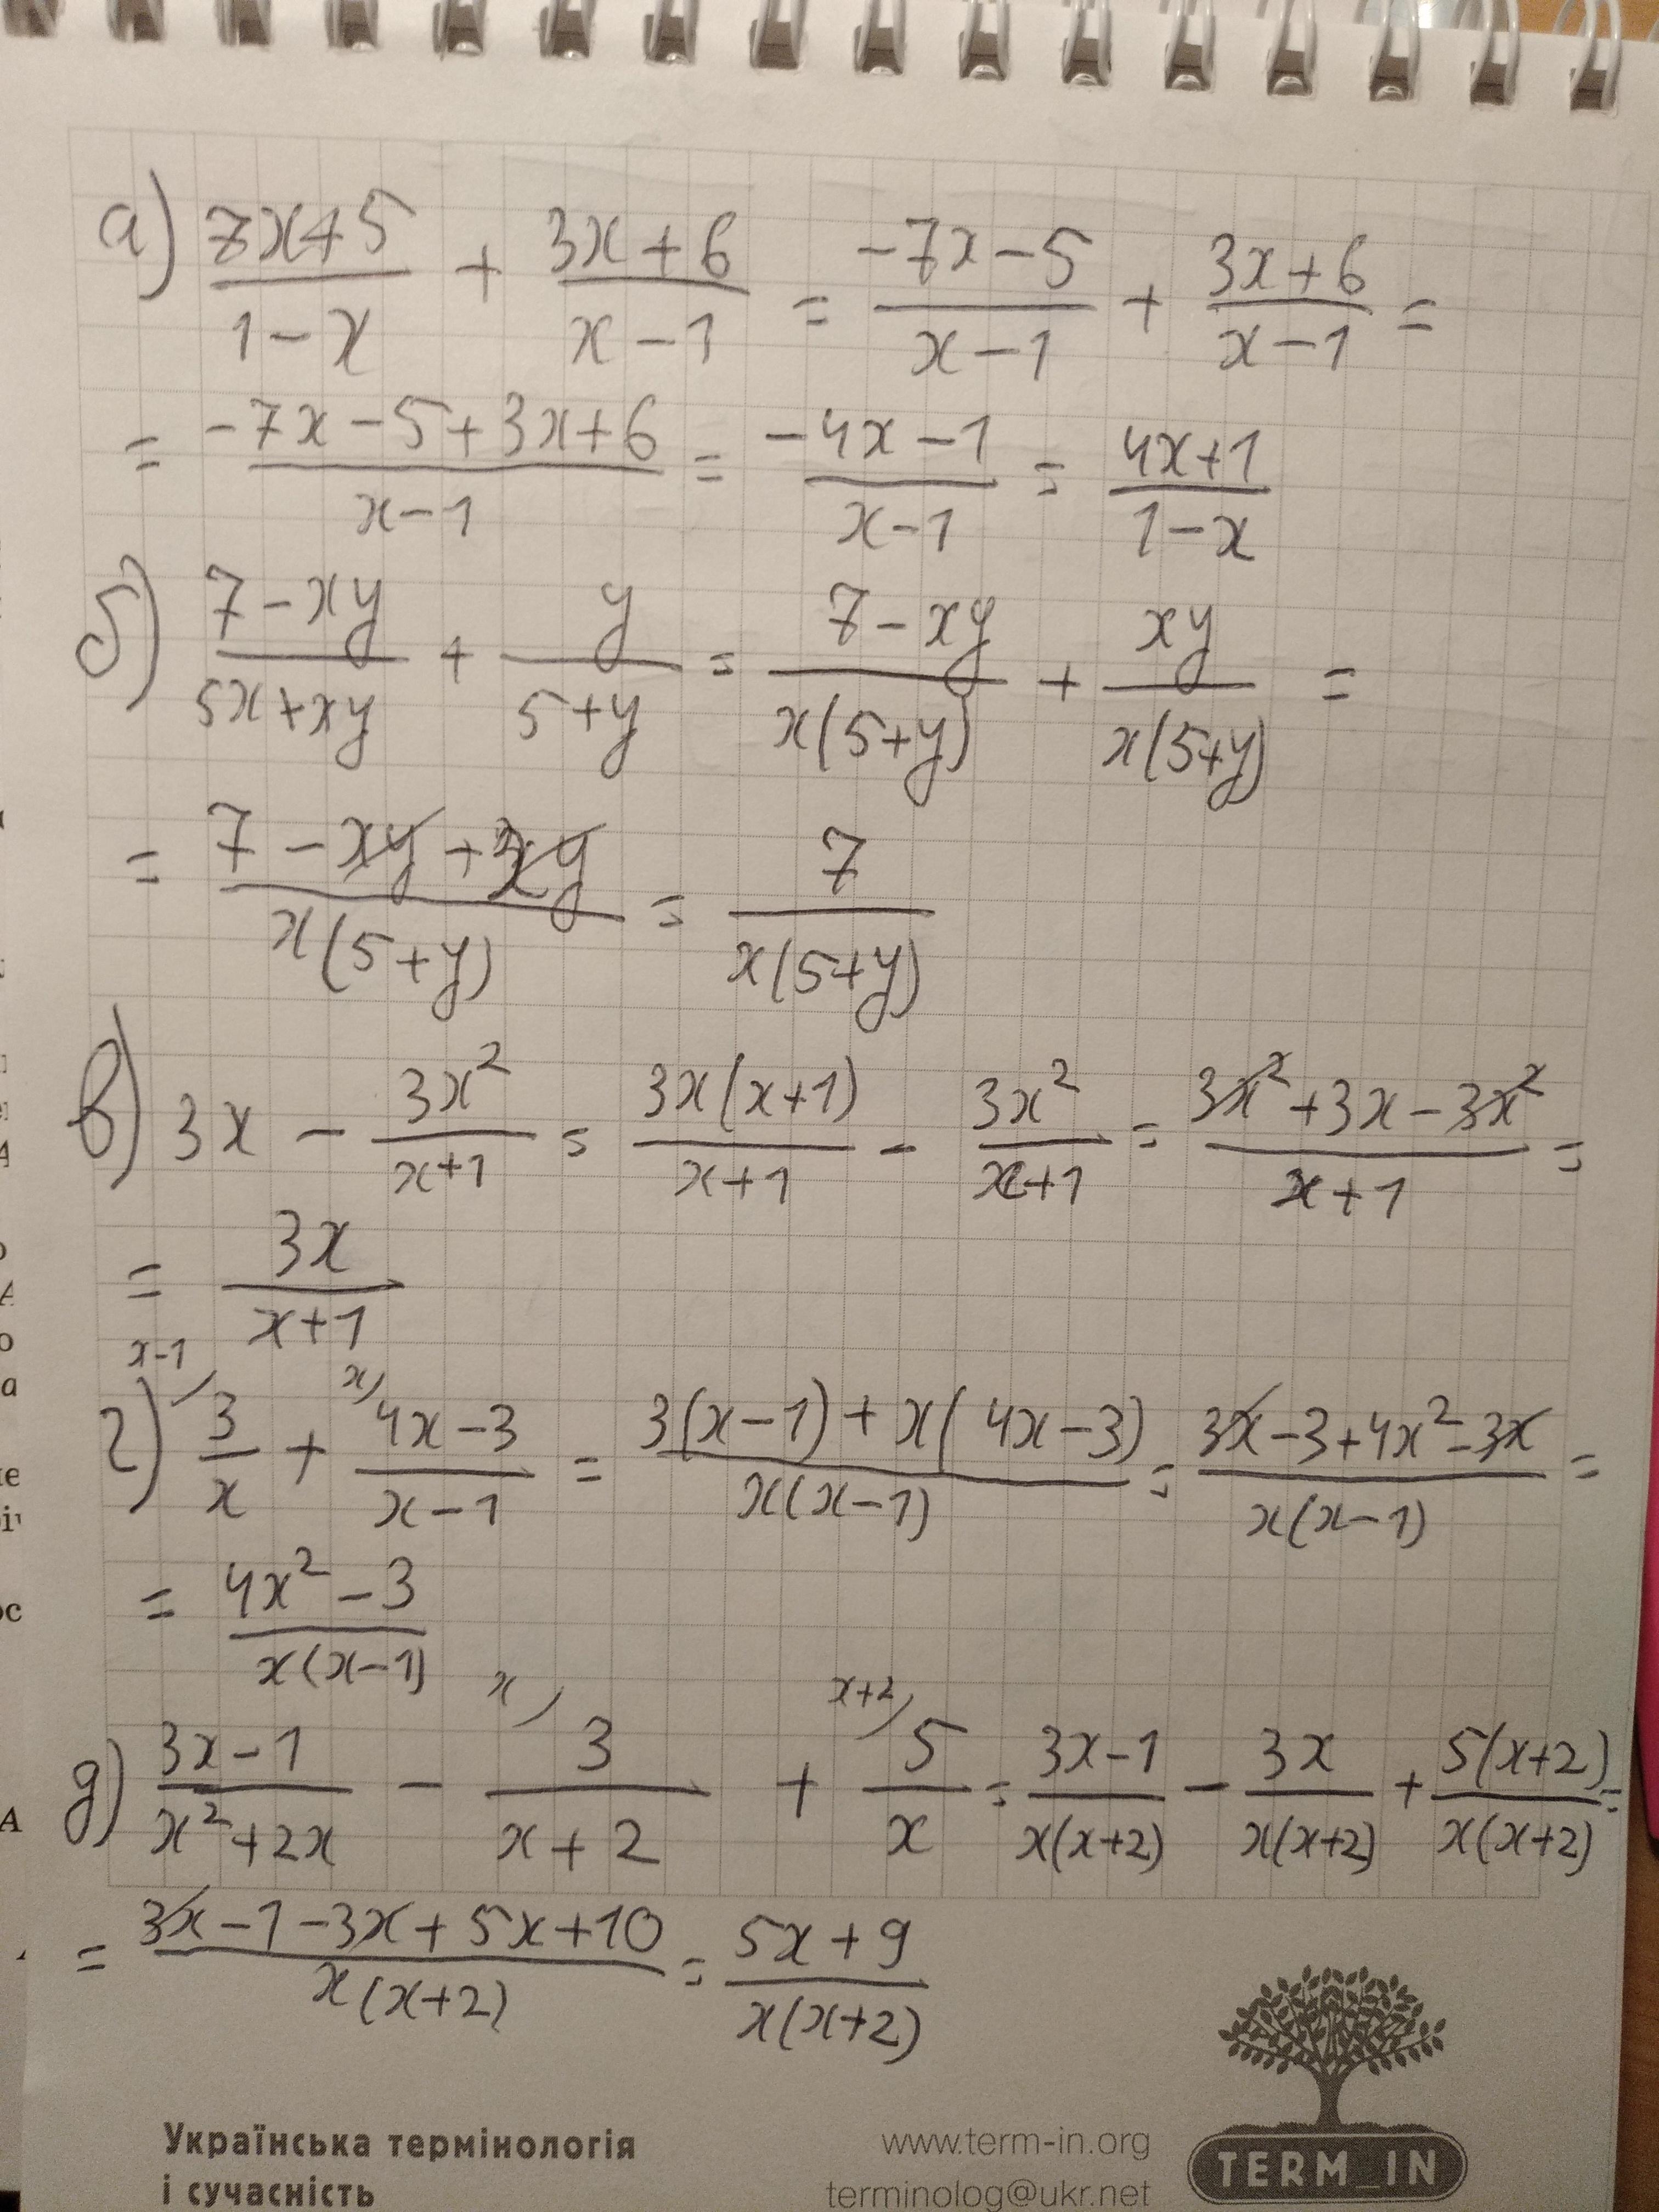 а) (7x+5)/(1-x) + (3x+6)/(x-1) = (-7x-5)/(x-1) + (3x+6)/(x-1) =
= (-7x-5+3x+6)/(x-1) = (-4x-1)/(x-1) = (4x+1)/(1-x)
б) (7-xy)/(5x+xy) + y/(5+y) = (7-xy)/(x(5+y)) + xy/(x(5+y)) =
= (7-xy+xy)/(x(5+y)) = 7/(x(5+y))
в) 3x - 3x²/(x+1) = 3x(x+1)/(x+1) - 3x²/(x+1) = (3x²+3x-3x²)/(x+1) =
= 3x/(x+1)
x-1 x
г) 3/x + (4x-3)/(x-1) = (3(x-1)+x(4x-3))/(x(x-1)) = (3x-3+4x²-3x)/(x(x-1)) =
= (4x²-3)/(x(x-1))
x x+2
д) (3x-1)/(x²+2x) - 3/(x+2) + 5/x = (3x-1)/(x(x+2)) - 3x/(x(x+2)) + 5(x+2)/(x(x+2)) =
= (3x-1-3x+5x+10)/(x(x+2)) = (5x+9)/(x(x+2))
Українська термінологія
і сучасність
www.term-in.org
terminolog@ukr.net
TERM_IN